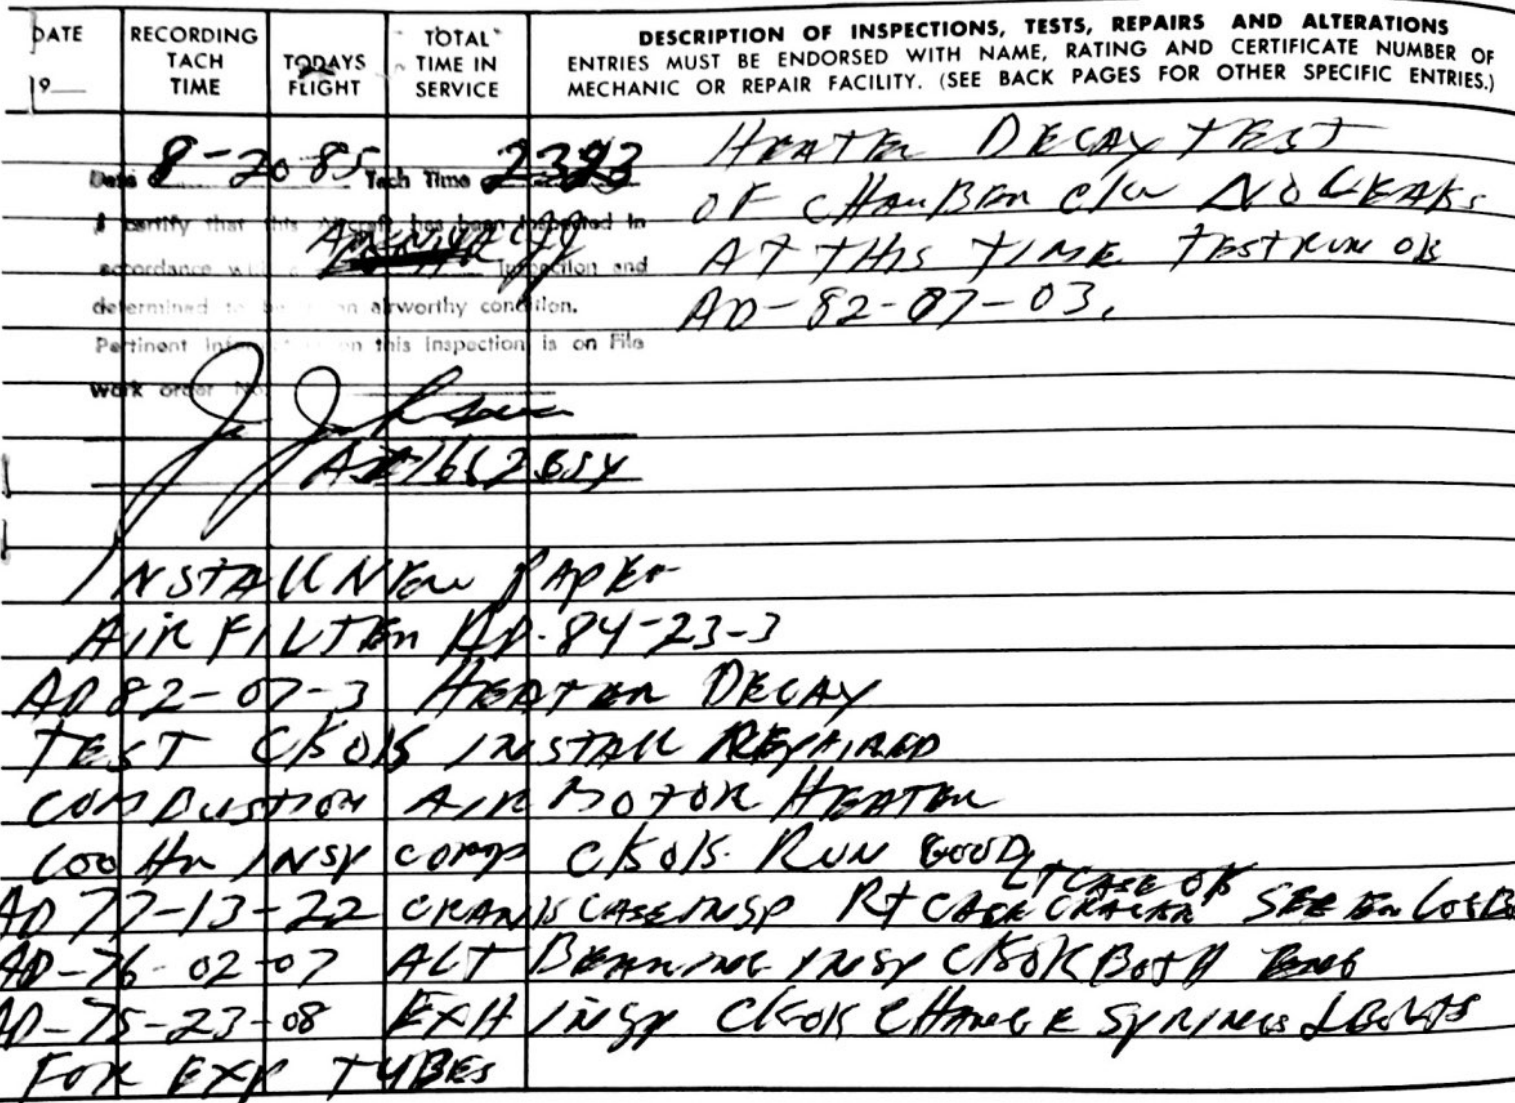 DATE
19__
RECORDING
TACH
TIME
TODAYS
FLIGHT
TOTAL
TIME IN
SERVICE
DESCRIPTION OF INSPECTIONS, TESTS, REPAIRS AND ALTERATIONS
ENTRIES MUST BE ENDORSED WITH NAME, RATING AND CERTIFICATE NUMBER OF
MECHANIC OR REPAIR FACILITY. (SEE BACK PAGES FOR OTHER SPECIFIC ENTRIES.)
Date 8-20 85 Tach Time 2323
I certify that this Aircraft has been inspected in
accordance with Inspection and
determined to be in an airworthy condition.
Pertinent information on this inspection is on File
Work order No.
HEATER DECAY TEST
OF CHAMBER C/W NO LEAKS
AT THIS TIME TEST RUN OK
AD-82-07-03.
INSTALL NEW PAPER
AIR FILTER AD-84-23-3
AD 82-07-3 HEATER DECAY
TEST CK OK INSTALL REPAIRED
COMBUSTION AIR MOTOR HEATER
100 HR INSP COMP CK OK. RUN GOOD
LT CASE OK
AD 77-13-22 CRANKCASE INSP RT CASE CRACKED SEE EN LOG BO
AD-76-02-07 ALT BEARING INSP CK OK BOTH ENG
AD-75-23-08 EXH INSP CK OK CHANGE SPRINGS & BOLTS
FOR EXP TUBES